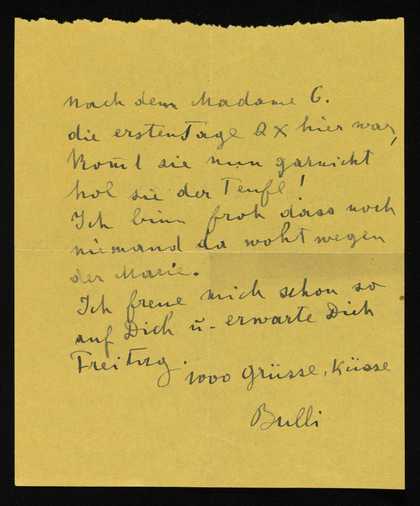 Nach dem Madame G.
die ersten Tage 2 x hier war,
kom̄t sie nun garnicht
hol sie der Teufl!
Ich binn froh dass noch
niemand da woht wegen
der Marie.
Ich freue mich schon so
auf Dich ū - erwarte Dich
Freitag.
1000 Grüsse, Küsse
Bulli